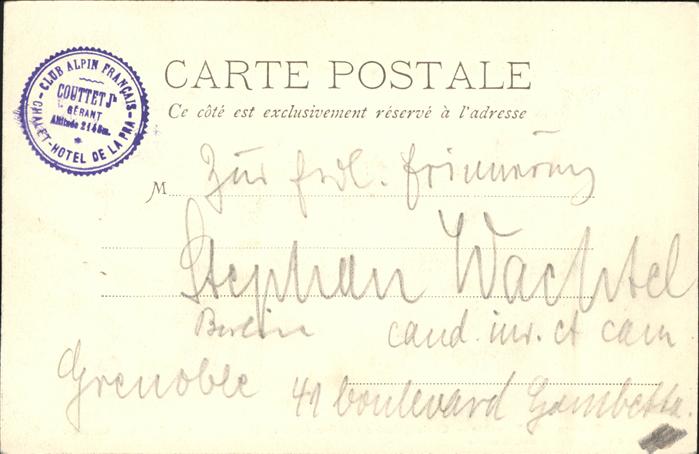 CLUB ALPIN FRANÇAIS
COUTTET Jh
GÉRANT
Altitude 2145m.
CHALET-HOTEL DE LA PRA
CARTE POSTALE
Ce côté est exclusivement réservé à l'adresse
M
Zur frdl. Erinnerung
Stephan Wachtel
Berlin cand. iur. et cam
Grenoble 41 boulevard Gambetta.